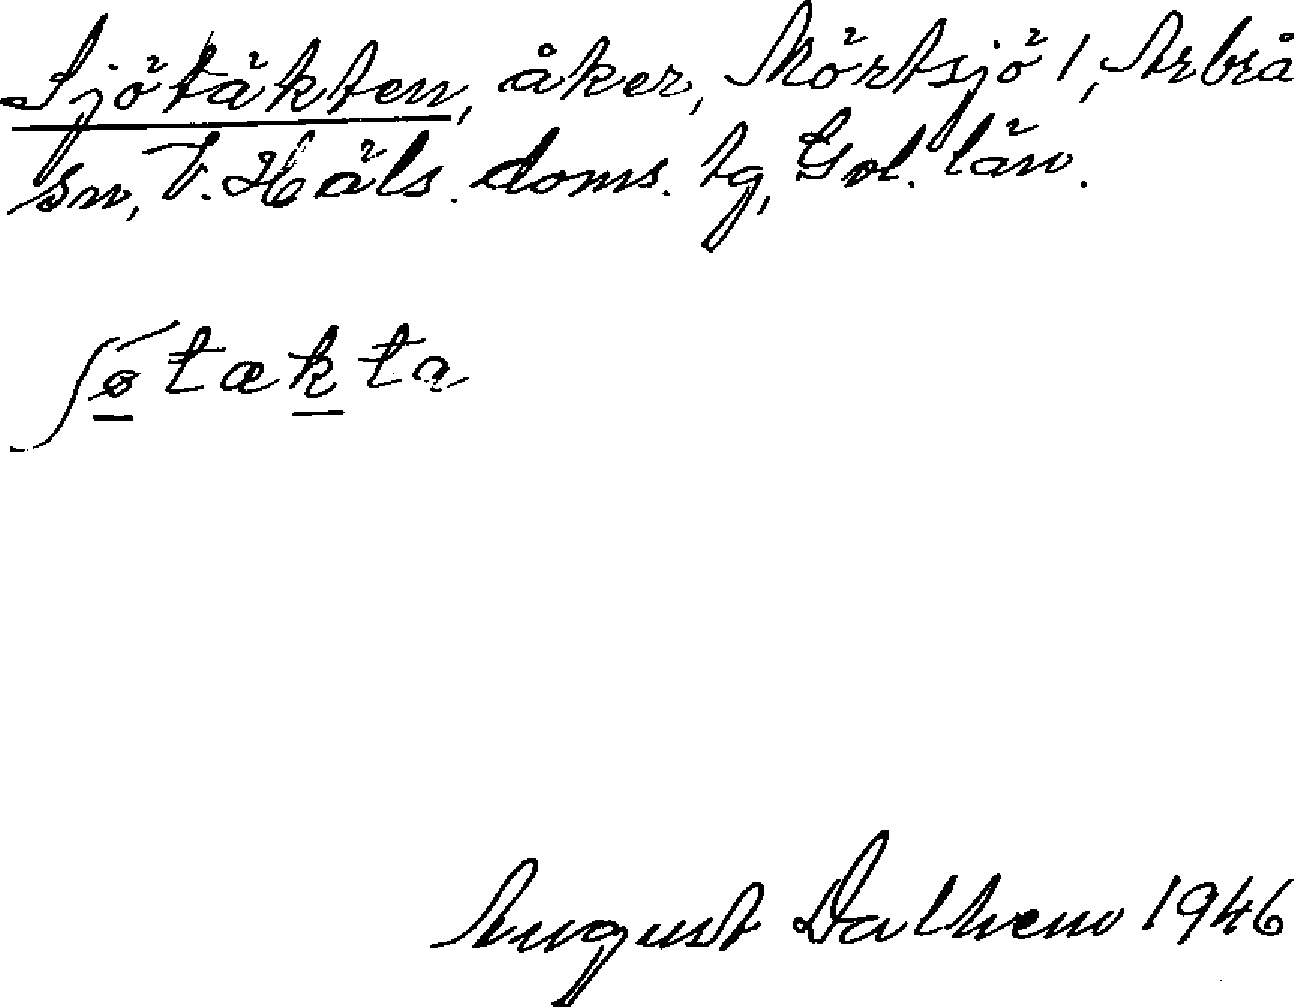 Sjötäkten, åker, Mörtsjö 1, Arbrå
sn, V. Häls. doms. tg, Gvl. län.
ʃǿtækta
August Dalhem 1946